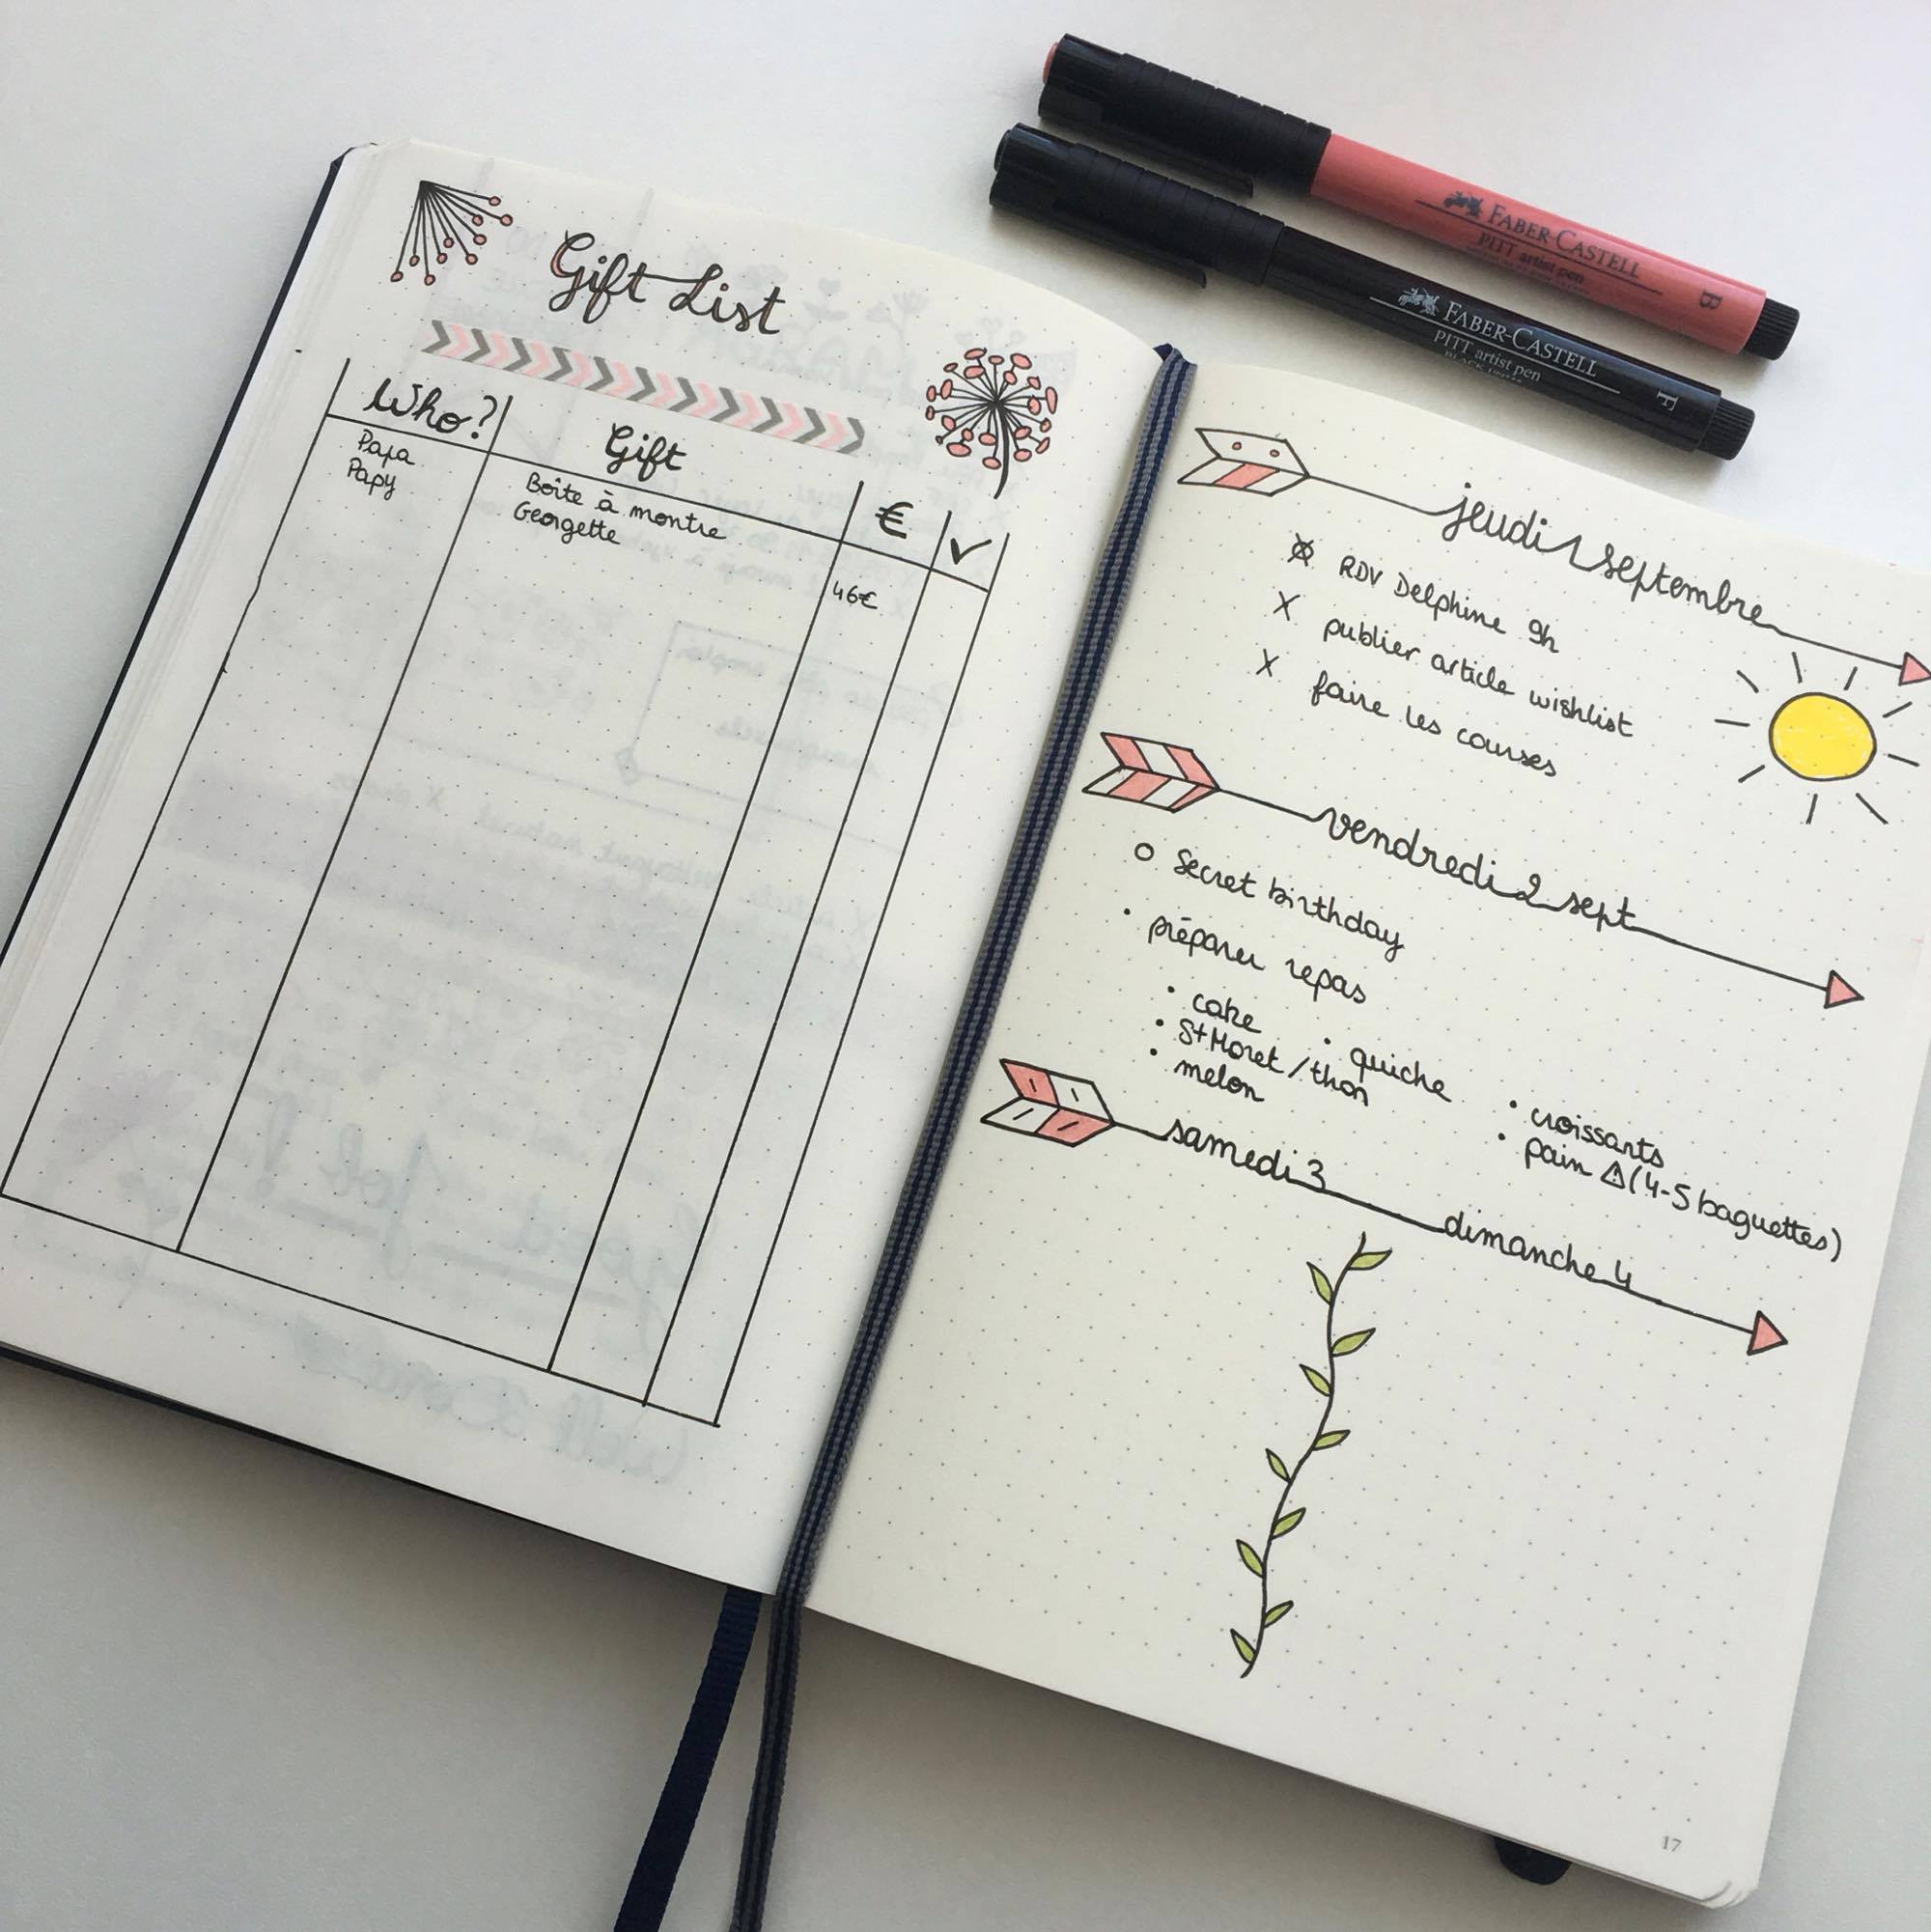 FABER-CASTELL
PITT artist pen
B
FABER-CASTELL
PITT artist pen
F
Gift List
Who?
Gift
€
✓
Papa
Boîte à montre
Papy
Georgette
46€
jeudi 1 septembre
RDV Delphine 9h
X publier article wishlist
X faire les courses
vendredi 2 sept
O Secret birthday
• préparer repas
• cake
• quiche
• St Moret / thon
• melon
• croissants
• pain ⚠ (4-5 baguettes)
samedi 3
dimanche 4
17